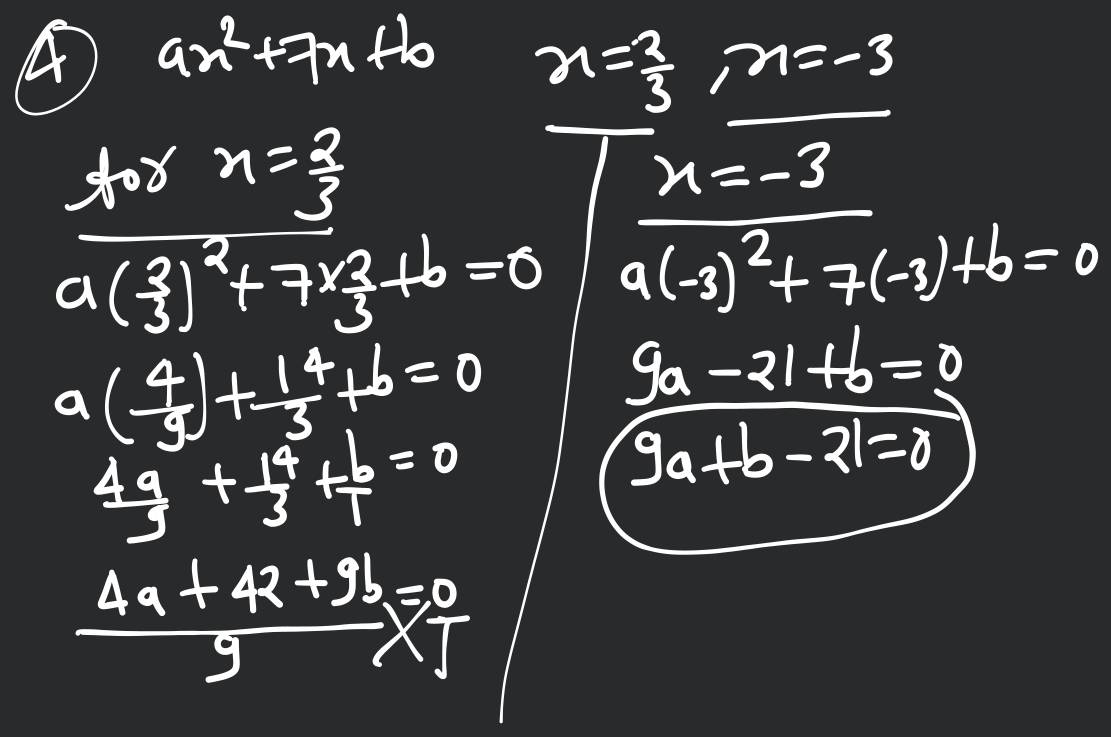 ④ ax²+7x+b x=2/3, x=-3
for x=2/3
a(2/3)²+7×2/3+b=0
a(4/9)+14/3+b=0
4a/9+14/3+b/1=0
(4a+42+9b)/9=0/1
x=-3
a(-3)²+7(-3)+b=0
9a-21+b=0
9a+b-21=0